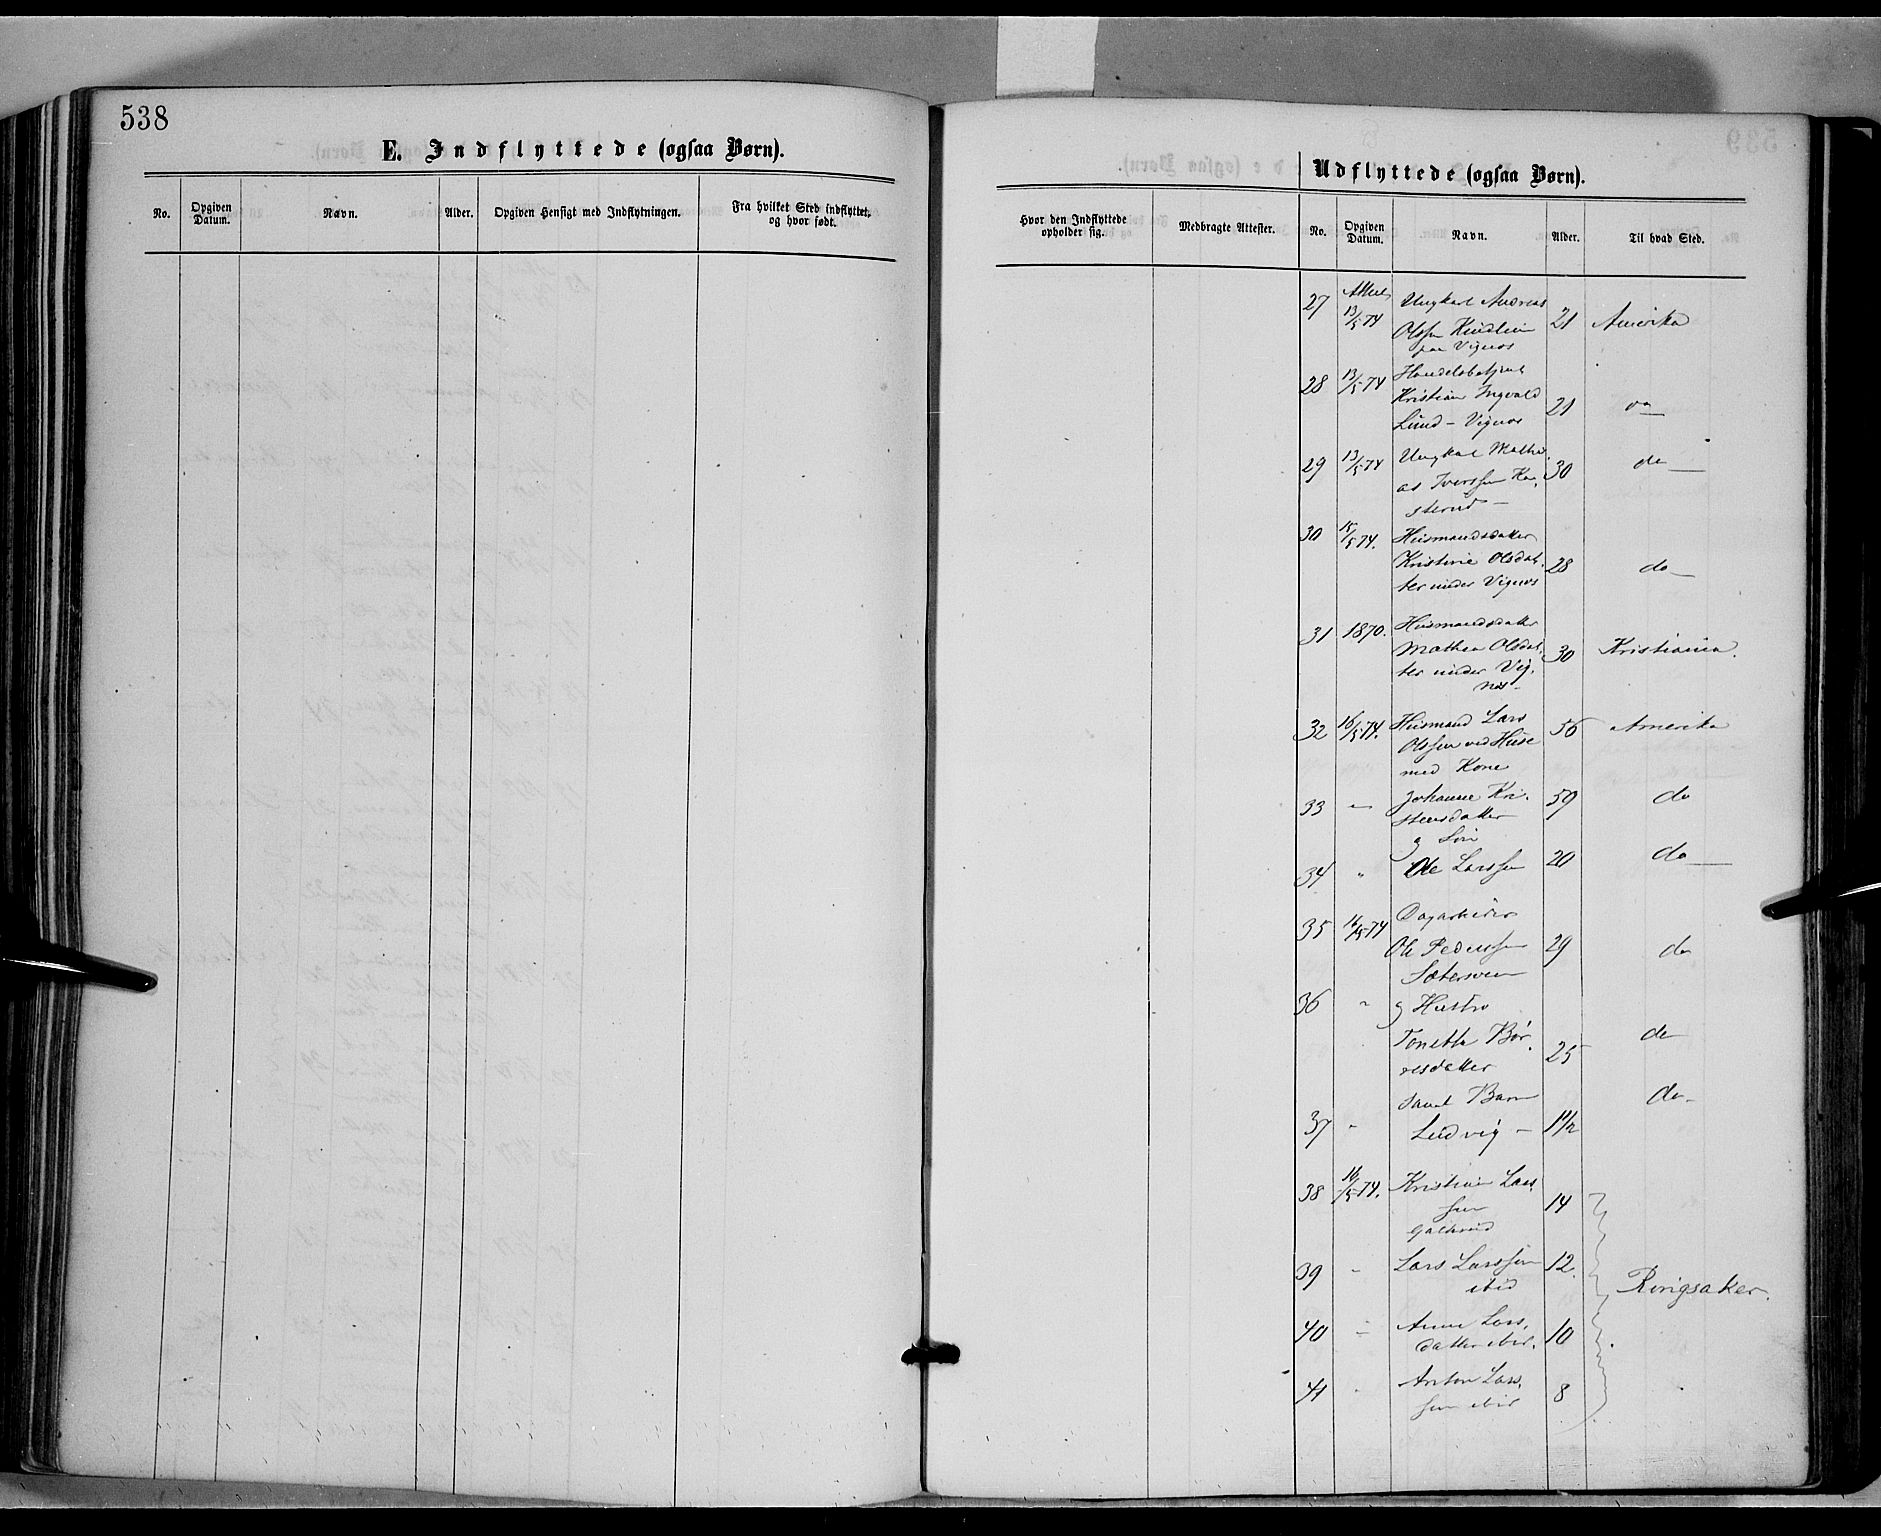 538
E. Indflyttede (ogsaa Børn).
No. Opgiven Datum. Navn. Alder. Opgiven Hensigt med Indflytningen. Fra hvilket Sted indflyttet, og hvor født.
Hvor den Indflyttede opholder sig. Medbragte Attester.
Udflyttede (ogsaa Børn).
No. Opgiven Datum. Navn. Alder. Til hvad Sted.
27 13/5 74 Ungkarl Andreas
Olssen
paa Vignæs 21 Amerika
28 13/5 74 Handelsbetjent
Kristian Ingvald
Lund - Vignæs 21 do
29 13/5 74 Ungkarl Mathi
as Iverssen Ka
sterud - 30 do
30 15/5 74. Husmandsdatter
Kristine Olsdat
ter under Vignæs 28 do
31 1870. Husmandsdatter
Mathea Olsdat
ter under Vig
næs - 30 Kristiania.
32 16/5 74. Husmand Lars
Olssen ved Huse
med Kone 56 Amerika
33 - Johanne Kri
stensdatter
og Søn 59 do
34 " Ole Larssen 20 do
35 16/5 74 Dagarbeider
Ole Pederssen
Sætersveen 29 do
36 " og Hustro
Tonette Bør
resdatter 25 do
37 " samt Barn
Ludvig - 1 1/2 do
38 16/5 74. Kristian Lars
sen 14
39 - Lars Larssen
ibid 12 Ringsaker.
40 - Anne Lars
datter ibid. 10
41 - Anton Lars
sen ibid 8